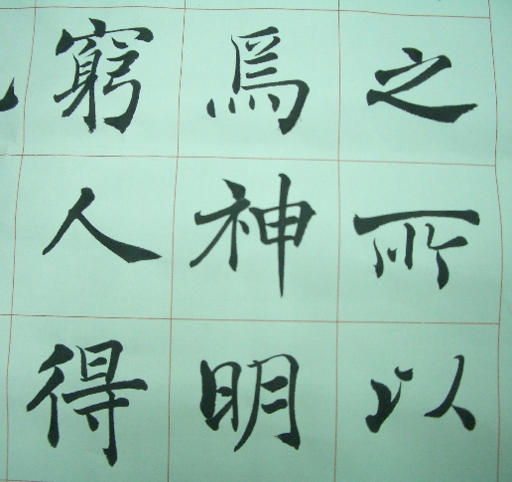 之所以
爲神明
窮人得